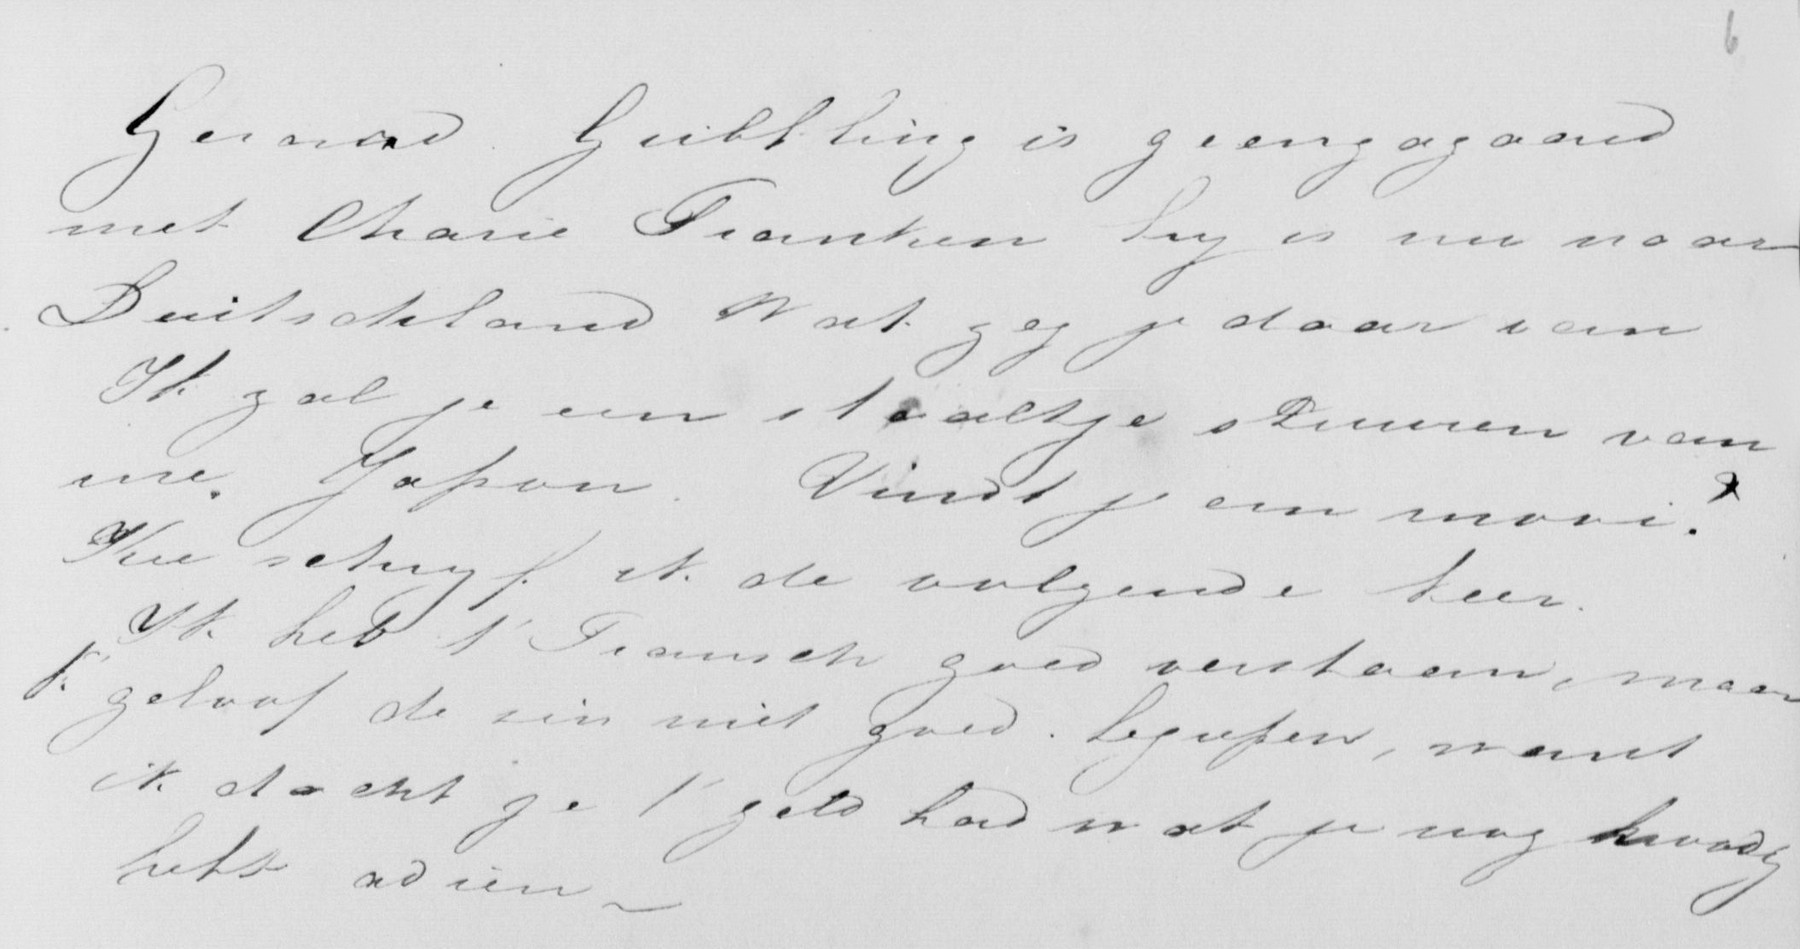 6
Gerard Guibtling is geengageerd
met Charie Franken hy is nu naar
Duitschland Wat zeg je daar van
Ik zal je een staaltje sturen van
me. Japon. Vindt je em mooi?
Kee schryf ik de volgende keer.
Ik heb t' Fransch goed verstaan, maar
k' geloof de zin niet goed. begrepen, want
ik dacht je t' geld had wat je nog noodig
hebt adieu